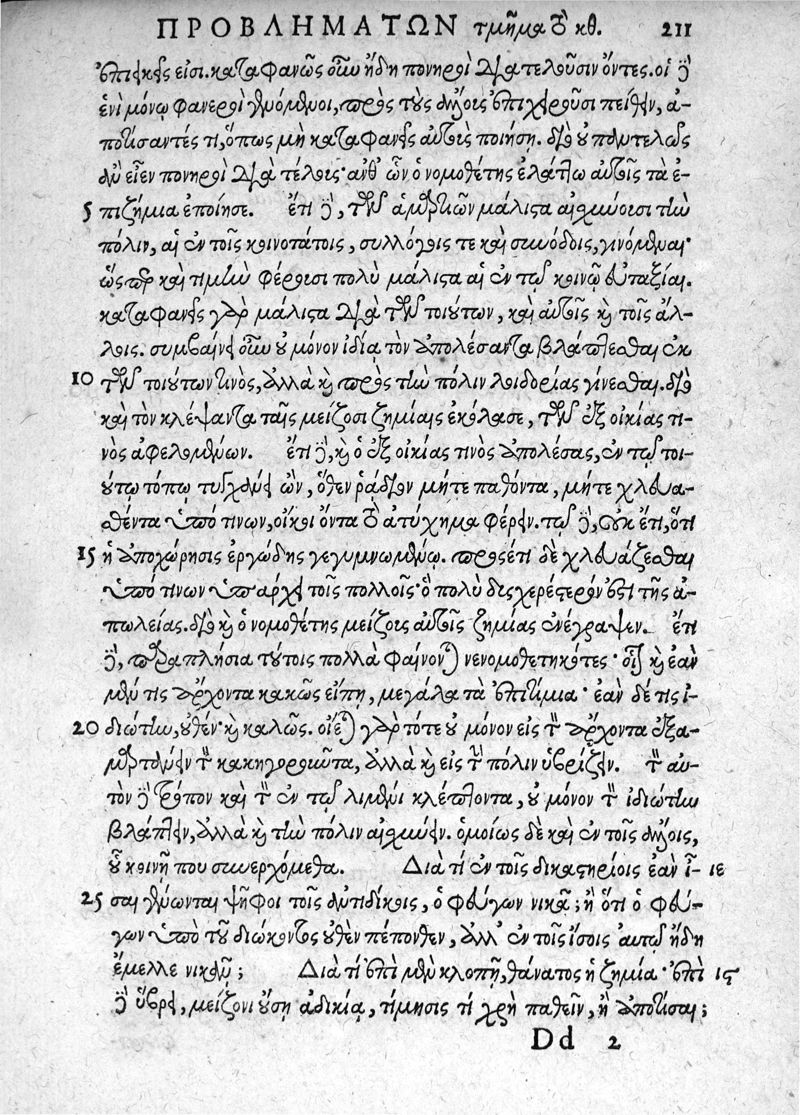 ΠΡΟΒΛΗΜΑΤΩΝ τμῆμα τὸ κθ. 211
ἐπιεικεῖς εἰσι. καταφανῶς οὖν ἤδη πονηροὶ διατελοῦσιν ὄντες. οἱ δὲ
ἑνὶ μόνῳ φανεροὶ γενόμενοι, πρὸς τοὺς ἄλλους ἐπιχειροῦσι πείθειν, ἀ-
ποτίσαντές τι, ὅπως μὴ καταφανεῖς αὐτοὺς ποιήσῃ. διὸ οὐ παντελῶς
ἂν εἶεν πονηροὶ διὰ τέλους· ἀνθ' ὧν ὁ νομοθέτης ἐλάττω αὐτοῖς τὰ ἐ-
5 πιζήμια ἐποίησε. ἔτι δὲ, τῶν ἁμαρτιῶν μάλιστα αἰσχύνουσι τὴν
πόλιν, αἱ ἐν τοῖς κοινοτάτοις, συλλόγοις τε καὶ συνόδοις, γινόμεναι·
ὥσπερ καὶ τιμὴν φέρουσι πολὺ μάλιστα αἱ ἐν τῷ κοινῷ εὐταξίαι.
καταφανεῖς γὰρ μάλιστα διὰ τῶν τοιούτων, καὶ αὐτοῖς καὶ τοῖς ἄλ-
λοις. συμβαίνει οὖν οὐ μόνον ἰδίᾳ τὸν ἀπολέσαντα βλάπτεσθαι ἐκ
10 τῶν τοιούτων τινὸς, ἀλλὰ καὶ πρὸς τὴν πόλιν λοιδορίας γίνεσθαι. διὸ
καὶ τὸν κλέψαντα ταῖς μείζοσι ζημίαις ἐκόλασε, τῶν ἐξ οἰκίας τι-
νὸς ἀφελομένων. ἔτι δὲ, καὶ ὁ ἐξ οἰκίας τινὸς ἀπολέσας, ἐν τῷ τοι-
ούτῳ τόπῳ τυγχάνει ὢν, ὅθεν ῥᾴδιον μήτε παθόντα, μήτε χλευα-
σθέντα ὑπό τινων, οἴκοι ὄντα τὸ ἀτύχημα φέρειν. τῷ δὲ, οὐκ ἔτι, ὅτι
15 ἡ ἀποχώρησις ἐργώδης γεγυμνωμένῳ. πρὸς ἔτι δὲ χλευάζεσθαι
ὑπό τινων ὑπάρχει τοῖς πολλοῖς· ὃ πολὺ δυσχερέστερόν ἐστι τῆς ἀ-
πωλείας. διὸ καὶ ὁ νομοθέτης μείζους αὐτοῖς ζημίας ἐνέγραψεν. ἔτι
δὲ, παραπλήσια τούτοις πολλὰ φαίνονται νενομοθετηκότες· οἷον καὶ ἐὰν
μέν τις ἄρχοντα κακῶς εἴπῃ, μεγάλα τὰ ἐπιτίμια· ἐὰν δέ τις ἰ-
20 διώτην, οὐθέν· καὶ καλῶς. οἴεται γὰρ τότε οὐ μόνον εἰς τὸν ἄρχοντα ἐξα-
μαρτάνειν τὸν κακηγοροῦντα, ἀλλὰ καὶ εἰς τὴν πόλιν ὑβρίζειν. τὸν αὐ-
τὸν δὲ τρόπον καὶ τὸν ἐν τῷ λιμένι κλέπτοντα, οὐ μόνον τὸν ἰδιώτην
βλάπτειν, ἀλλὰ καὶ τὴν πόλιν αἰσχύνειν. ὁμοίως δὲ καὶ ἐν τοῖς ἄλλοις,
οὗ κοινῇ που συνερχόμεθα. Διὰ τί ἐν τοῖς δικαστηρίοις ἐὰν ἴ- ιε
25 σαι γένωνται ψῆφοι τοῖς ἀντιδίκοις, ὁ φεύγων νικᾷ; ἢ ὅτι ὁ φεύ-
γων ὑπὸ τοῦ διώκοντος οὐθὲν πέπονθεν, ἀλλ' ἐν τοῖς ἴσοις αὐτῷ ἤδη
ἔμελλε νικᾶν; Διὰ τί ἐπὶ μὲν κλοπῇ, θάνατος ἡ ζημία· ἐπὶ ις
δὲ ὕβρει, μείζονι οὔσῃ ἀδικίᾳ, τίμησις τί χρὴ παθεῖν, ἢ ἀποτίσαι;
Dd 2